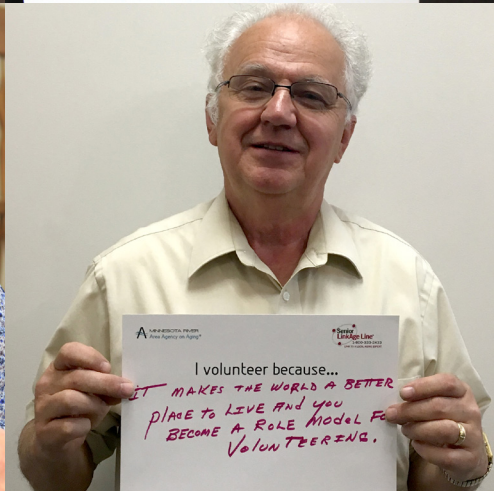 MINNESOTA RIVER
Area Agency on Aging®
Senior
LinkAge Line®
I volunteer because...
IT MAKES THE WORLD A BETTER
PLACE TO LIVE AND YOU
BECOME A ROLE MODEL FO
VOLUNTEERING.